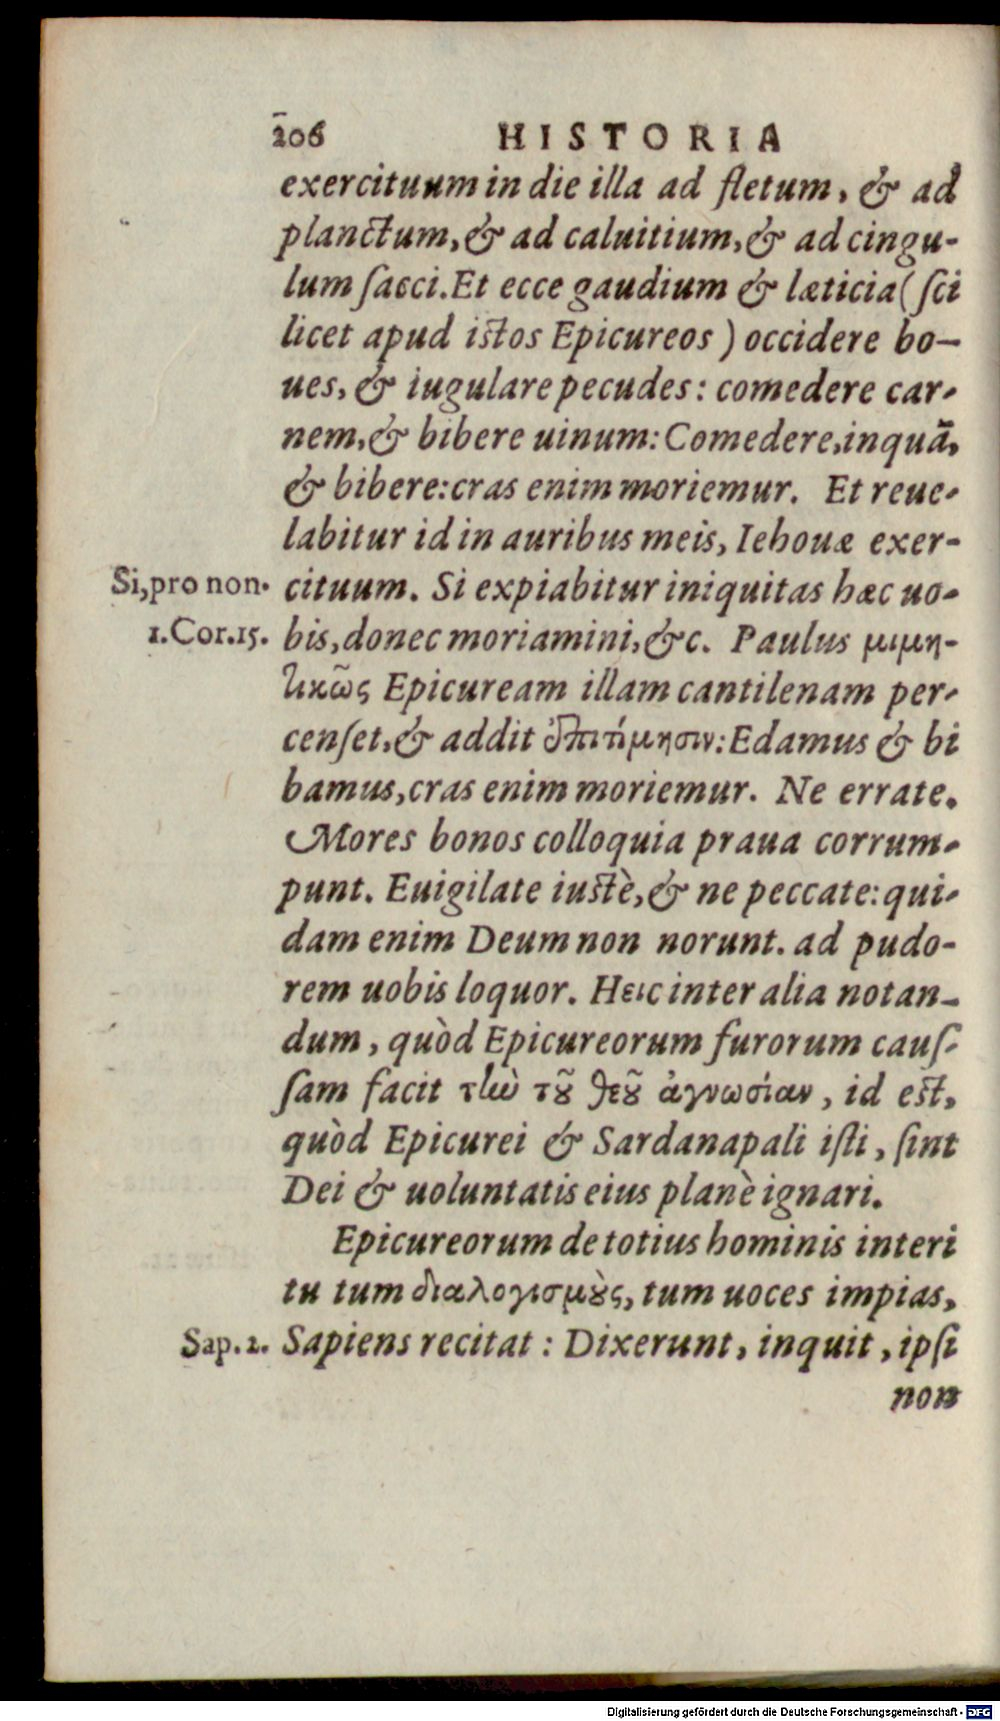 206 HISTORIA
exercituum in die illa ad fletum, & ad
planctum, & ad caluitium, & ad cingu-
lum ſacci. Et ecce gaudium & læticia (ſci
licet apud iſtos Epicureos) occidere bo-
ues, & iugulare pecudes: comedere car-
nem, & bibere uinum: Comedere, inquã,
& bibere: cras enim moriemur. Et reue-
labitur id in auribus meis, Iehouæ exer-
Si, pro non. cituum. Si expiabitur iniquitas hæc uo-
1. Cor. 15. bis, donec moriamini, &c. Paulus μιμη-
τικῶς Epicuream illam cantilenam per-
cenſet, & addit ἐπιτίμησιν: Edamus & bi
bamus, cras enim moriemur. Ne errate.
Mores bonos colloquia praua corrum-
punt. Euigilate iuſtè, & ne peccate: qui-
dam enim Deum non norunt. ad pudo-
rem uobis loquor. Heic inter alia notan-
dum, quòd Epicureorum furorum cauſ-
ſam facit τὼ τοῦ θεοῦ ἀγνωσίαν, id eſt,
quòd Epicurei & Sardanapali iſti, ſint
Dei & uoluntatis eius planè ignari.
Epicureorum de totius hominis interi
tu tum διαλογισμοὺς, tum uoces impias,
Sap. 2. Sapiens recitat: Dixerunt, inquit, ipſi
non
Digitalisierung gefördert durch die Deutsche Forschungsgemeinschaft - DFG